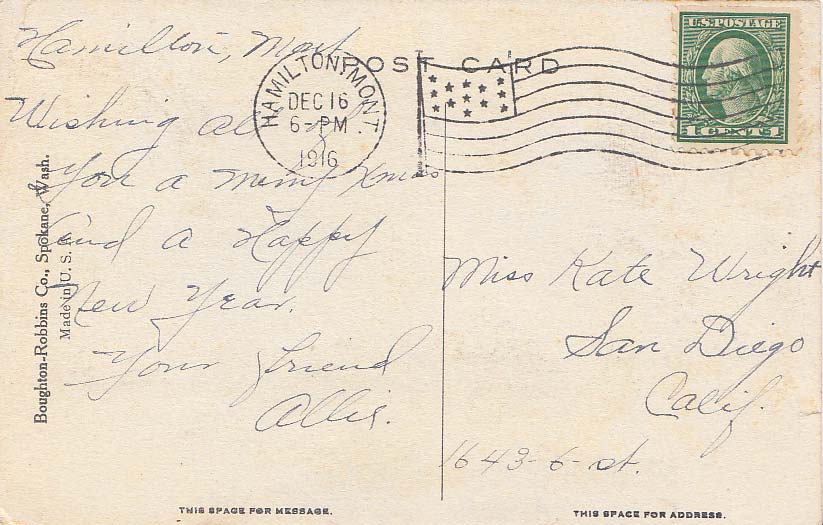 Hamilton, Mont.
POST CARD
HAMILTON, MONT.
DEC 16
6-PM
1916
U.S. POSTAGE
1 CENT 1
Wishing all of
You a merry Xmas
and a Happy
New Year.
Your friend
Allis.
Boughton-Robbins Co., Spokane, Wash.
Made in U. S.
Miss Kate Wright
San Diego
Calif.
1643-6-st.
THIS SPACE FOR MESSAGE.
THIS SPACE FOR ADDRESS.